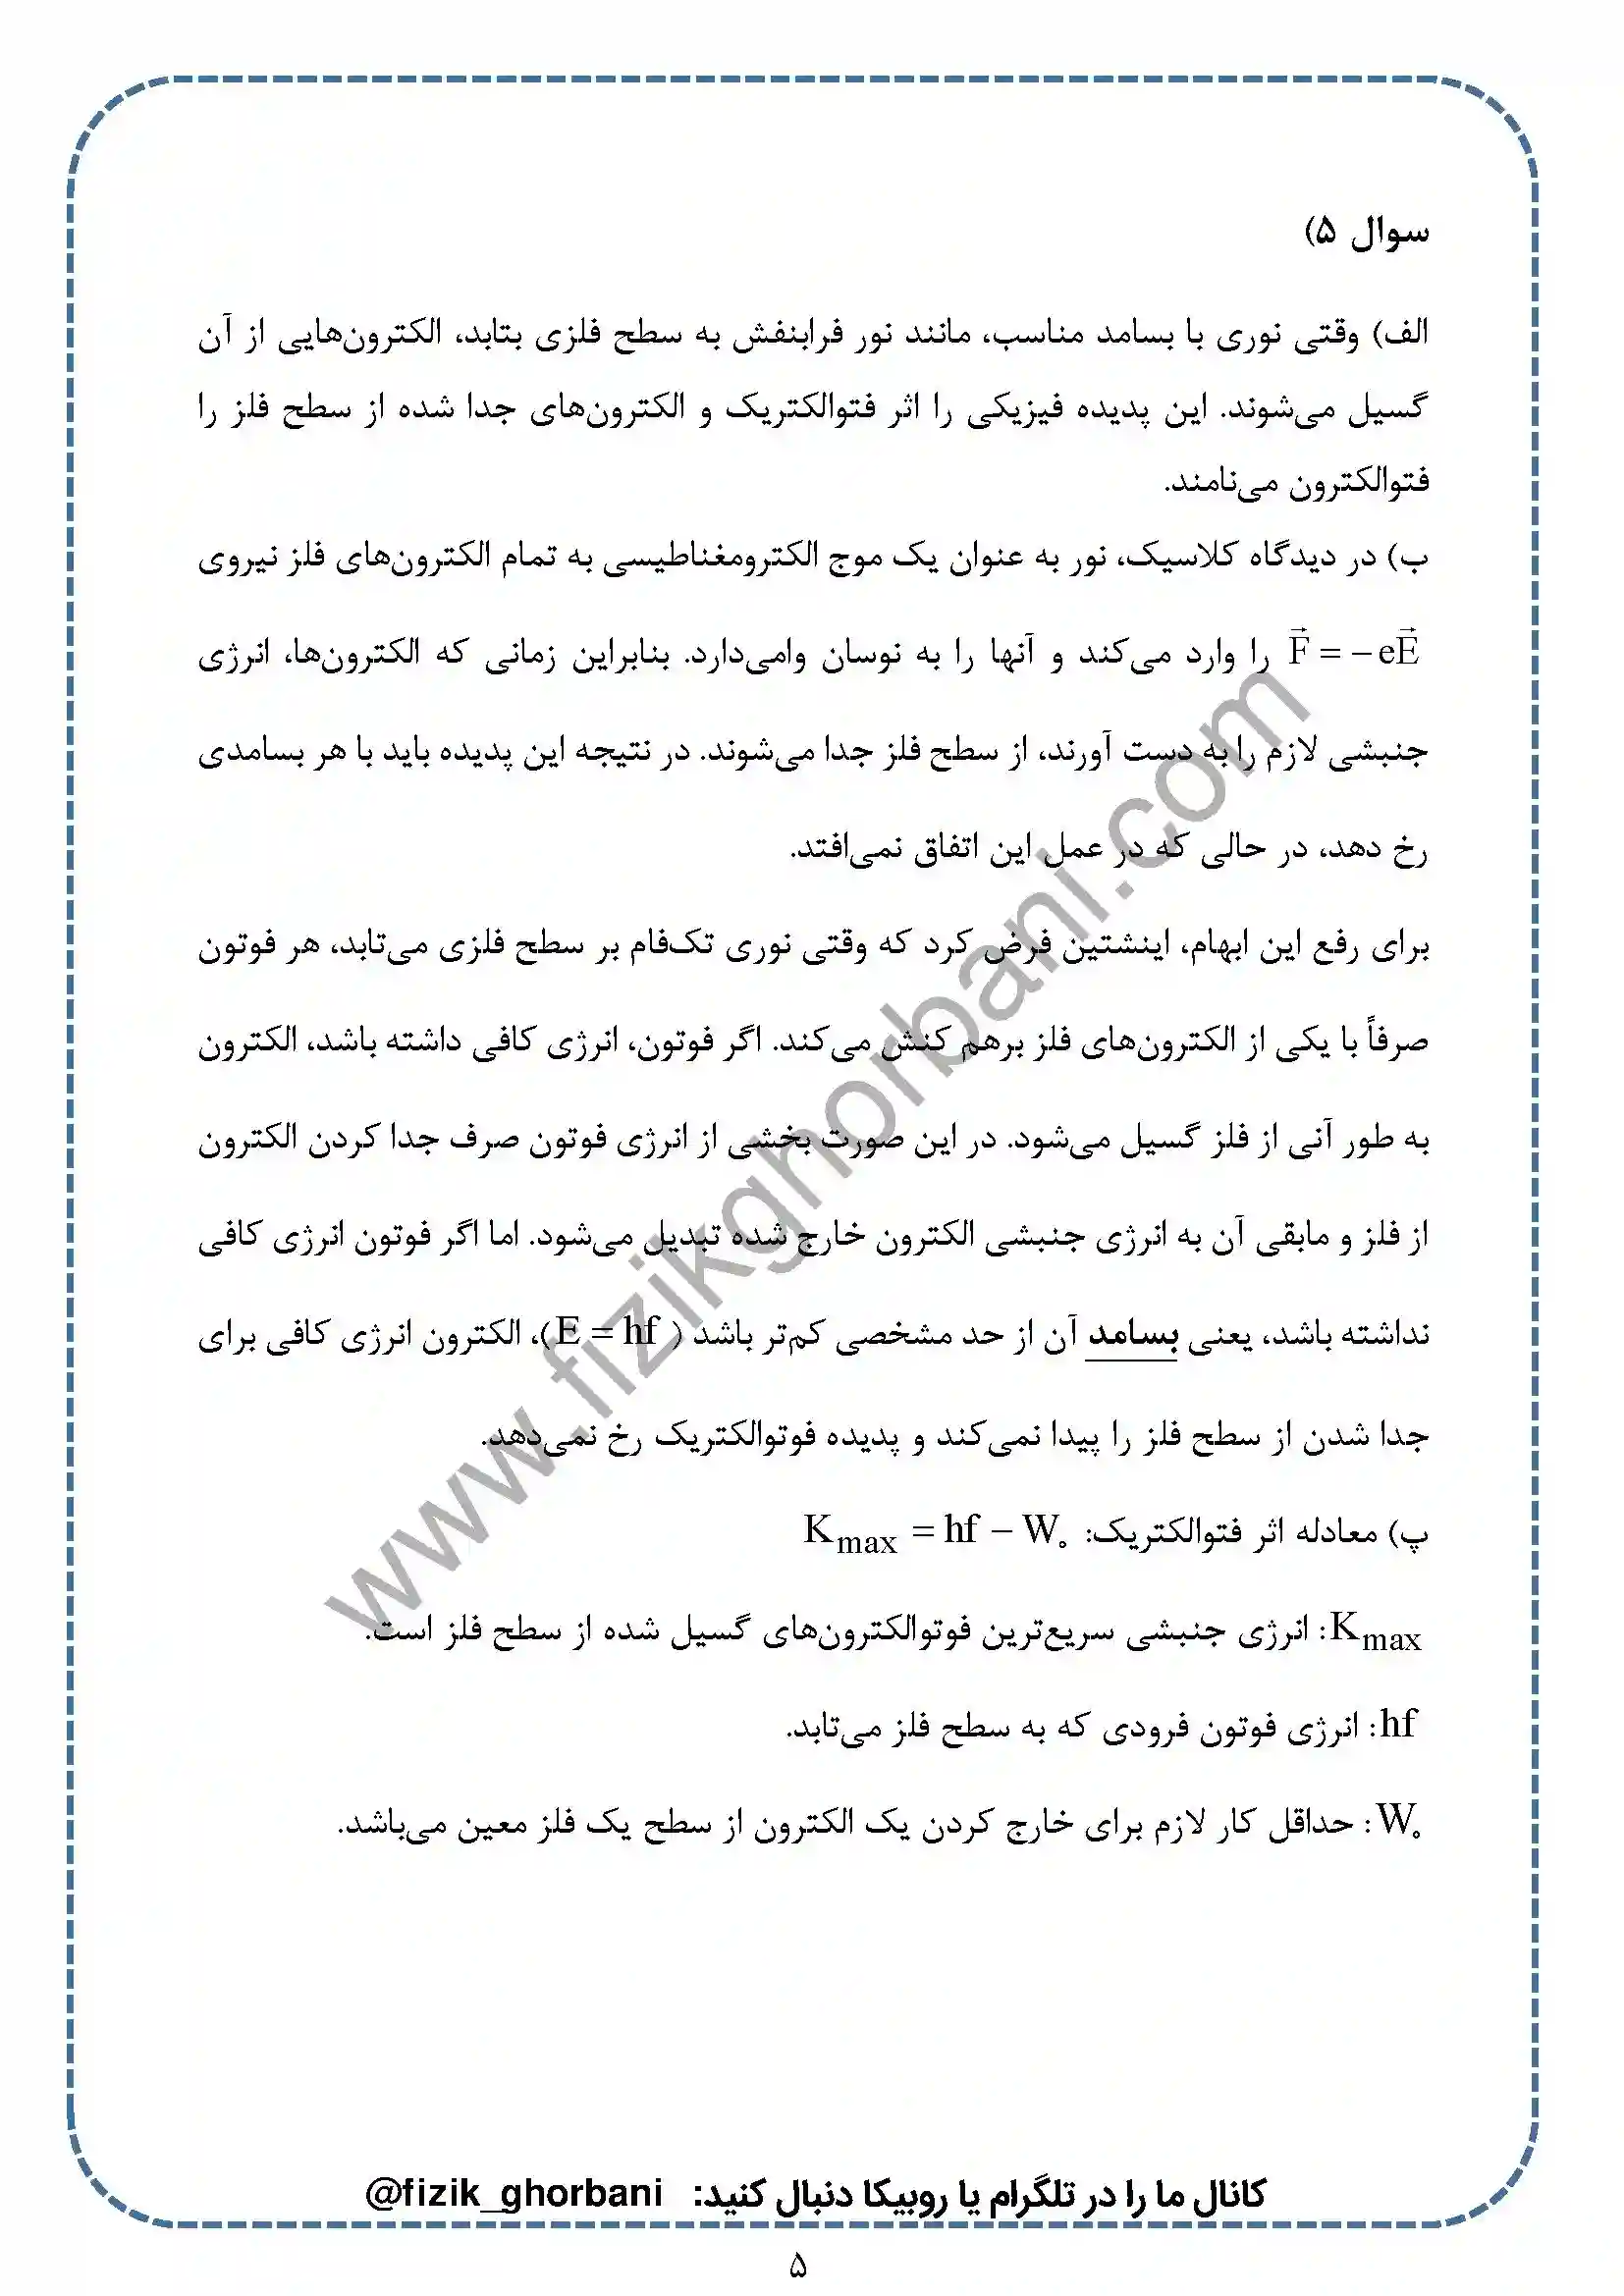 سوال ۵)
الف) وقتی نوری با بسامد مناسب، مانند نور فرابنفش به سطح فلزی بتابد، الکترون‌هایی از آن
گسیل می‌شوند. این پدیده فیزیکی را اثر فتوالکتریک و الکترون‌های جدا شده از سطح فلز را
فتوالکترون می‌نامند.
ب) در دیدگاه کلاسیک، نور به عنوان یک موج الکترومغناطیسی به تمام الکترون‌های فلز نیروی
F⃗ = − eE⃗ را وارد می‌کند و آنها را به نوسان وامی‌دارد. بنابراین زمانی که الکترون‌ها، انرژی
جنبشی لازم را به دست آورند، از سطح فلز جدا می‌شوند. در نتیجه این پدیده باید با هر بسامدی
رخ دهد، در حالی که در عمل این اتفاق نمی‌افتد.
برای رفع این ابهام، اینشتین فرض کرد که وقتی نوری تک‌فام بر سطح فلزی می‌تابد، هر فوتون
صرفاً با یکی از الکترون‌های فلز برهم کنش می‌کند. اگر فوتون، انرژی کافی داشته باشد، الکترون
به طور آنی از فلز گسیل می‌شود. در این صورت بخشی از انرژی فوتون صرف جدا کردن الکترون
از فلز و مابقی آن به انرژی جنبشی الکترون خارج شده تبدیل می‌شود. اما اگر فوتون انرژی کافی
نداشته باشد، یعنی بسامد آن از حد مشخصی کم‌تر باشد ( E = hf)، الکترون انرژی کافی برای
جدا شدن از سطح فلز را پیدا نمی‌کند و پدیده فوتوالکتریک رخ نمی‌دهد.
پ) معادله اثر فتوالکتریک: K max = hf − W∘
K max: انرژی جنبشی سریع‌ترین فوتوالکترون‌های گسیل شده از سطح فلز است.
hf: انرژی فوتون فرودی که به سطح فلز می‌تابد.
W∘: حداقل کار لازم برای خارج کردن یک الکترون از سطح یک فلز معین می‌باشد.
www.fizikghorbani.com
کانال ما را در تلگرام یا روبیکا دنبال کنید: @fizik_ghorbani
۵